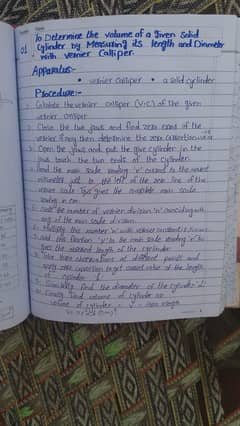 01 To Determine the volume of a given Solid
Cylinder by Measuring its length and Diameter
with vernier Calliper.
Apparatus:-
• vernier calliper • a solid cylinder
Procedure:-
Calculate the vernier calliper (V.C) of the given
vernier calliper
Close the two jaws and find zero error of the
vernier if any then determine the zero correction
Open the jaws and put the give cylinder in the
jaws touch the two ends of the cylinder
Read the main scale reading 'x' correct to the nearest
millimeter just to the left of the zero line of the
vernier scale. This gives the main scale
reading in cm.
the number of vernier division 'n' coinciding with
any of the main scale division.
Multiply this number 'n' with vernier constant
Add this fraction 'y' to the main scale reading 'x'
gives the observed length of the cylinder
Take three observations at different points and
zero correction to get correct value of the length
of cylinder
Similarly find the diameter of the cylinder
Finally find volume of cylinder
volume of cylinder = V =